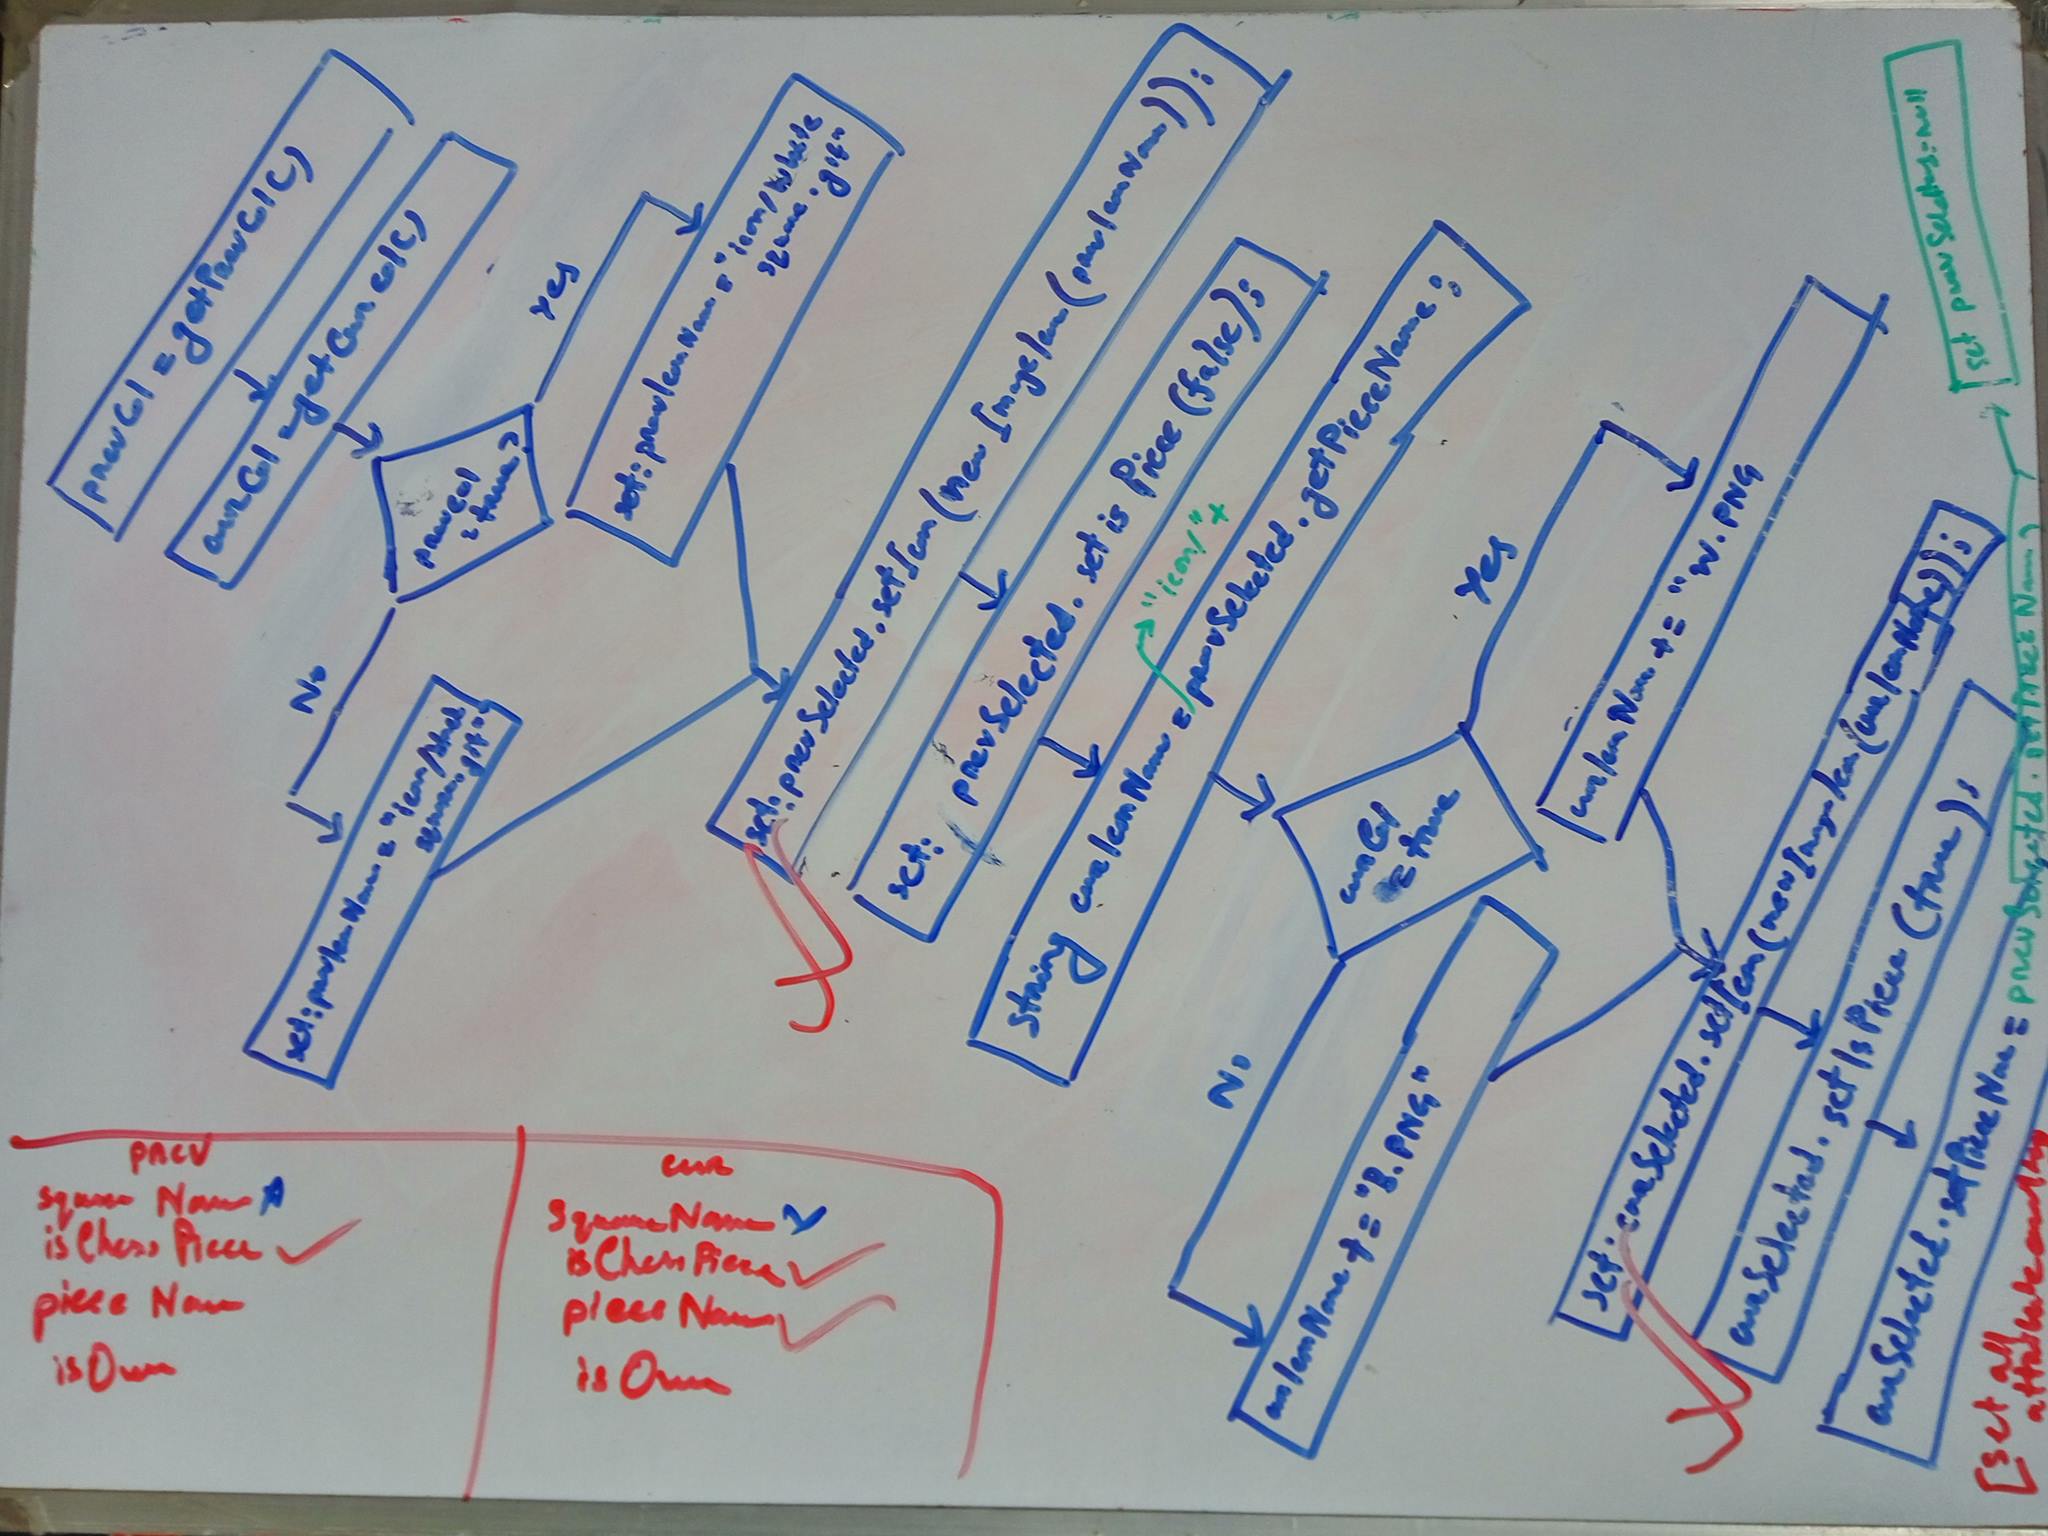 prevCol = getPrevCol()
curCol = getCurCol()
prevCol
= true?
Yes
No
set: prevIconName = "icon/white
square.gif"
set: prevIconName = "icon/black
square.gif"
set: prevSelected.setIcon(new ImageIcon(prevIconName));
set: prevSelected.set is Piece (false);
"icon/" +
String curIconName = prevSelected.getPieceName;
curCol
= true
Yes
No
curIconName += "W.PNG
curIconName += "B.PNG"
set: curSelected.setIcon(new ImageIcon(curIconName));
curSelected.setIsPiece (true);
curSelected.setPieceName = prevSelected.getPieceName;
set prevSelected = null
[set all
prev
squareName
isChessPiece
pieceName
isOwn
cur
squareName
isChessPiece
pieceName
isOwn